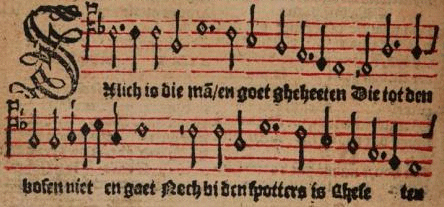 SAlich is die mā/en goet gheheeten Die tot den
bosen niet en gaet Noch bi den spotters is Ghese ten